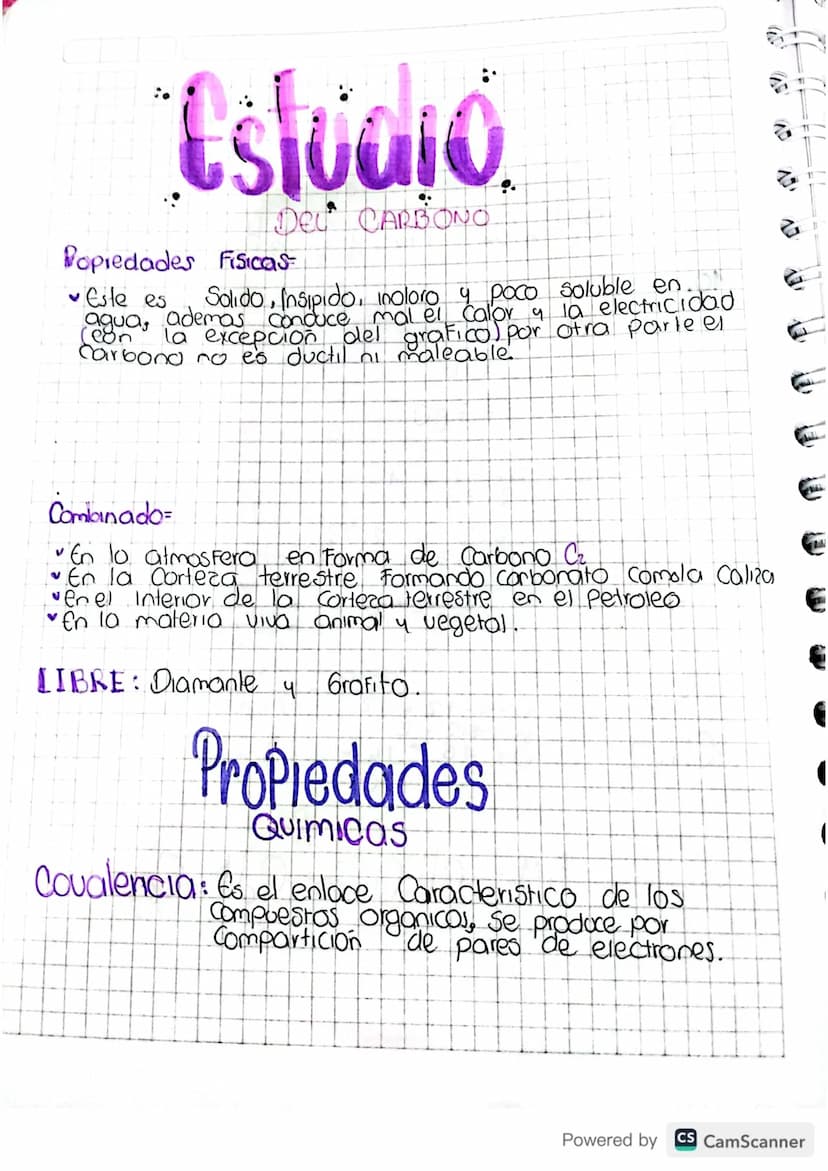 Estudio
DEL CARBONO
Popiedades Fisicas=
Este es Solido, Insipido, inoloro y poco soluble en
agua, ademas conduce mal el calor y la electricidad
(con la excepcion del grafico) por otra parte el
Carbono no es ductil ni maleable.
Combinado=
En la atmosfera en Forma de Carbono C2
En la Corteza terrestre Formando carbonato como la Caliza
en el Interior de la Corteza terrestre en el Petroleo
En la materia viva animal y vegetal.
LIBRE: Diamante y Grafito.
Propiedades
Quimicas
Covalencia: Es el enlace Caracteristico de los
Compuestos organicos, se produce por
Compartición de pares de electrones.
Powered by CS CamScanner